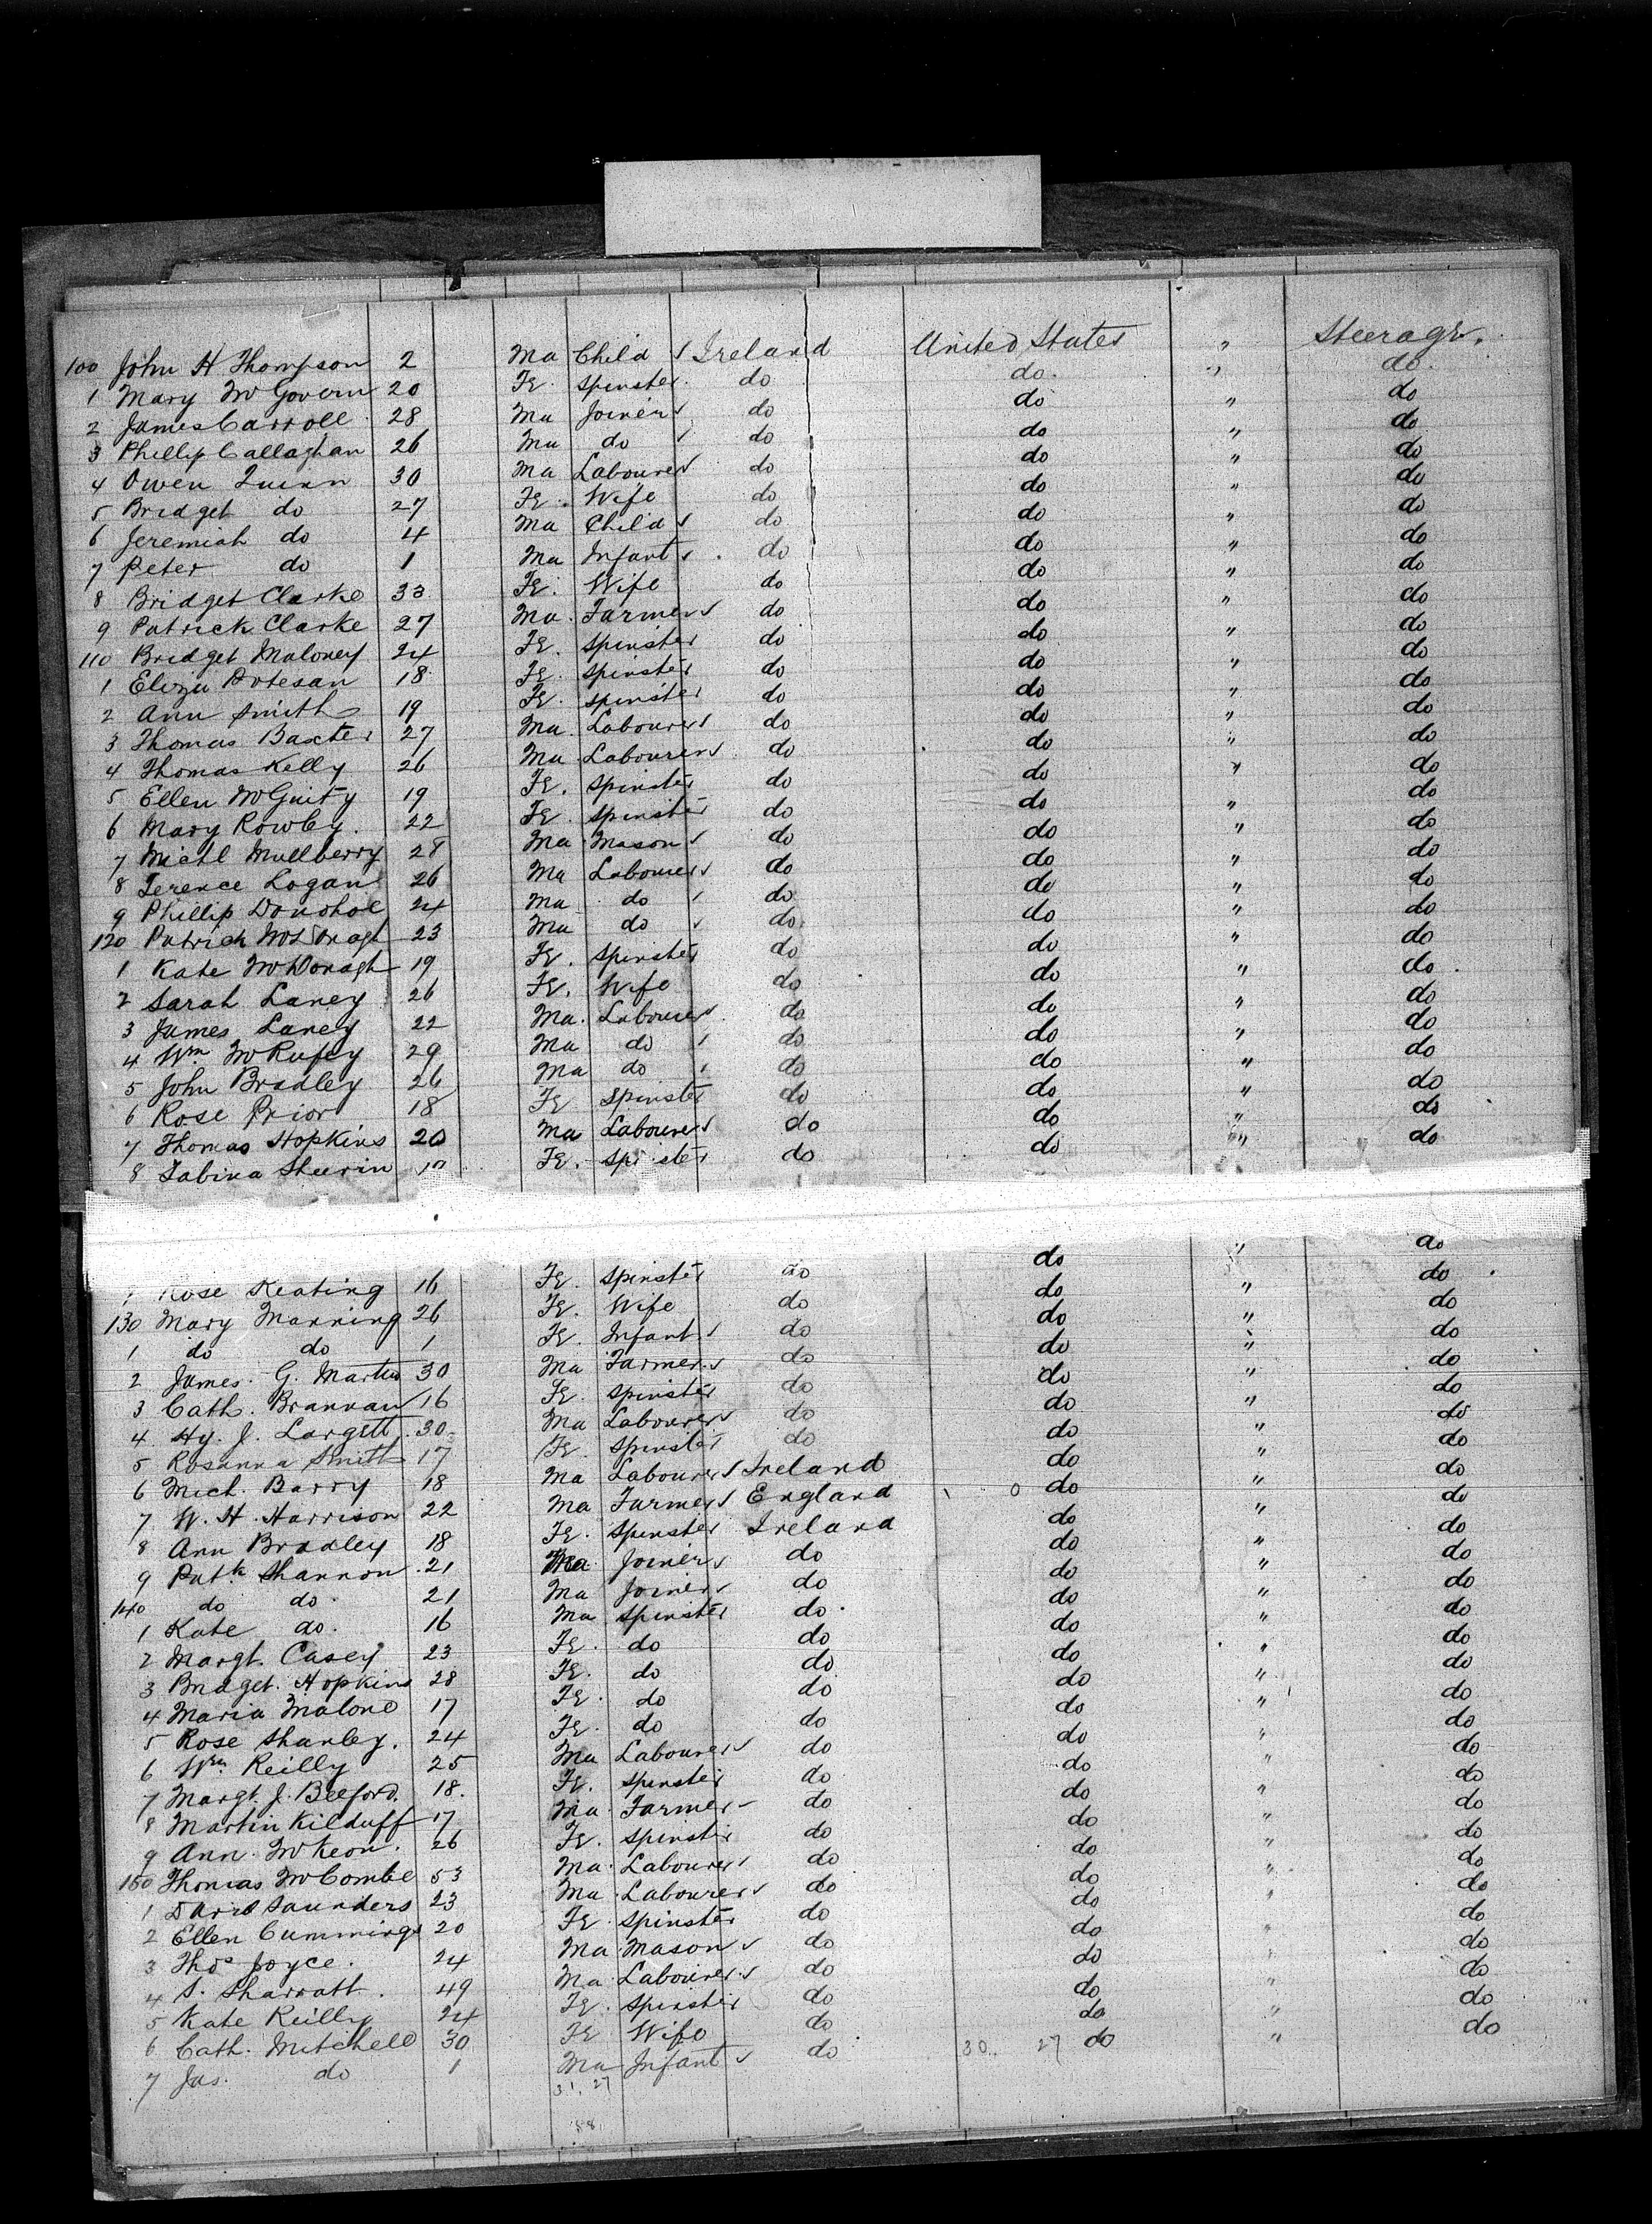 100 John H Thompson 2 Ma Child Ireland United States " Steerage.
1 Mary McGovern 20 Fe. Spinster do do. " do.
2 James Carroll 28 Ma Joiner do do " do
3 Phillip Callaghan 26 Ma do do do " do
4 Owen Quinn 30 Ma Labourer do do " do
5 Bridget do 27 Fe. Wife do do " do
6 Jeremiah do 4 Ma Child do do " do
7 Peter do 1 Ma Infant do do " do
8 Bridget Clarke 33 Fe. Wife do do " do
9 Patrick Clarke 27 Ma. Farmer do do " do
110 Bridget Maloney 24 Fe. Spinster do do " do
1 Eliza 18 Fe. Spinster do do " do
2 Ann Smith 19 Fe. Spinster do do " do
3 Thomas Baxter 27 Ma. Labourer do do " do
4 Thomas Kelly 26 Ma. Labourer do do " do
5 Ellen McGuity 19 Fe. Spinster do do " do
6 Mary Rowley. 22 Fe. Spinster do do " do
7 Michl Mullberry 28 Ma Mason do do " do
8 Terence Logan 26 Ma Labourer do do " do
9 Phillip Donohoe 24 Ma do do do " do
120 Patrick 23 Ma do do do " do
1 Kate McDonagh 19 Fe. Spinster do do " do
2 Sarah Laney 26 Fe. Wife do do " do
3 James Laney 22 Ma. Labourer do do " do
4 Wm 29 Ma do do do " do
5 John Bradley 26 Ma do do do " do
6 Rose Prior 18 Fe Spinster do do " do
7 Thomas Hopkins 20 Ma Labourer do do " do
8 Sabina Sheerin Fe. Spinster do do " do
Rose Keating 16 Fe. Spinster do do " do
130 Mary Manning 26 Fe. Wife do do " do
1 do do 1 Fe. Infant do do " do
2 James. G. Martin 30 Ma Farmer do do " do
3 Cath. Brannan 16 Fe. Spinster do do " do
4 Hy. J. Largett. 30 Ma Labourer do do " do
5 Rosanna Smith 17 Fe. Spinster do do " do
6 Mich. Barry 18 Ma Labourer Ireland do " do
7 W. H. Harrison 22 Ma Farmer England do " do
8 Ann Bradley 18 Fe. Spinster Ireland do " do
9 Patk Shannon 21 Ma Joiner do do " do
140 do do. 21 Ma Joiner do do " do
1 Kate do. 16 Ma Spinster do. do " do
2 Margt. Casey 23 Fe. do do do " do
3 Bridget. Hopkins 28 Fe. do do do " do
4 Maria Malone 17 Fe. do do do " do
5 Rose Shanley. 24 Fe. do do do " do
6 Wm Reilly 25 Ma Labourer do do " do
7 Margt. J. Beeford. 18. Fe. Spinster do do " do
8 Martin Kilduff 17 Ma Farmer do do " do
9 Ann. McKeon. 26 Fe. Spinster do do " do
150 Thomas McCombe 53 Ma. Labourer do do " do
1 David Saunders 23 Ma. Labourer do do " do
2 Ellen Cummings 20 Fe. Spinster do do " do
3 Thos Joyce. 24 Ma. Mason do do " do
4 S. Sharratt. 49 Ma. Labourer do do " do
5 Kate Reilly 24 Fe. Spinster do do " do
6 Cath. Mitchell 30 Fe Wife do do " do
7 Jas. do 1 Ma Infant do 30. 27 do " do
31. 27